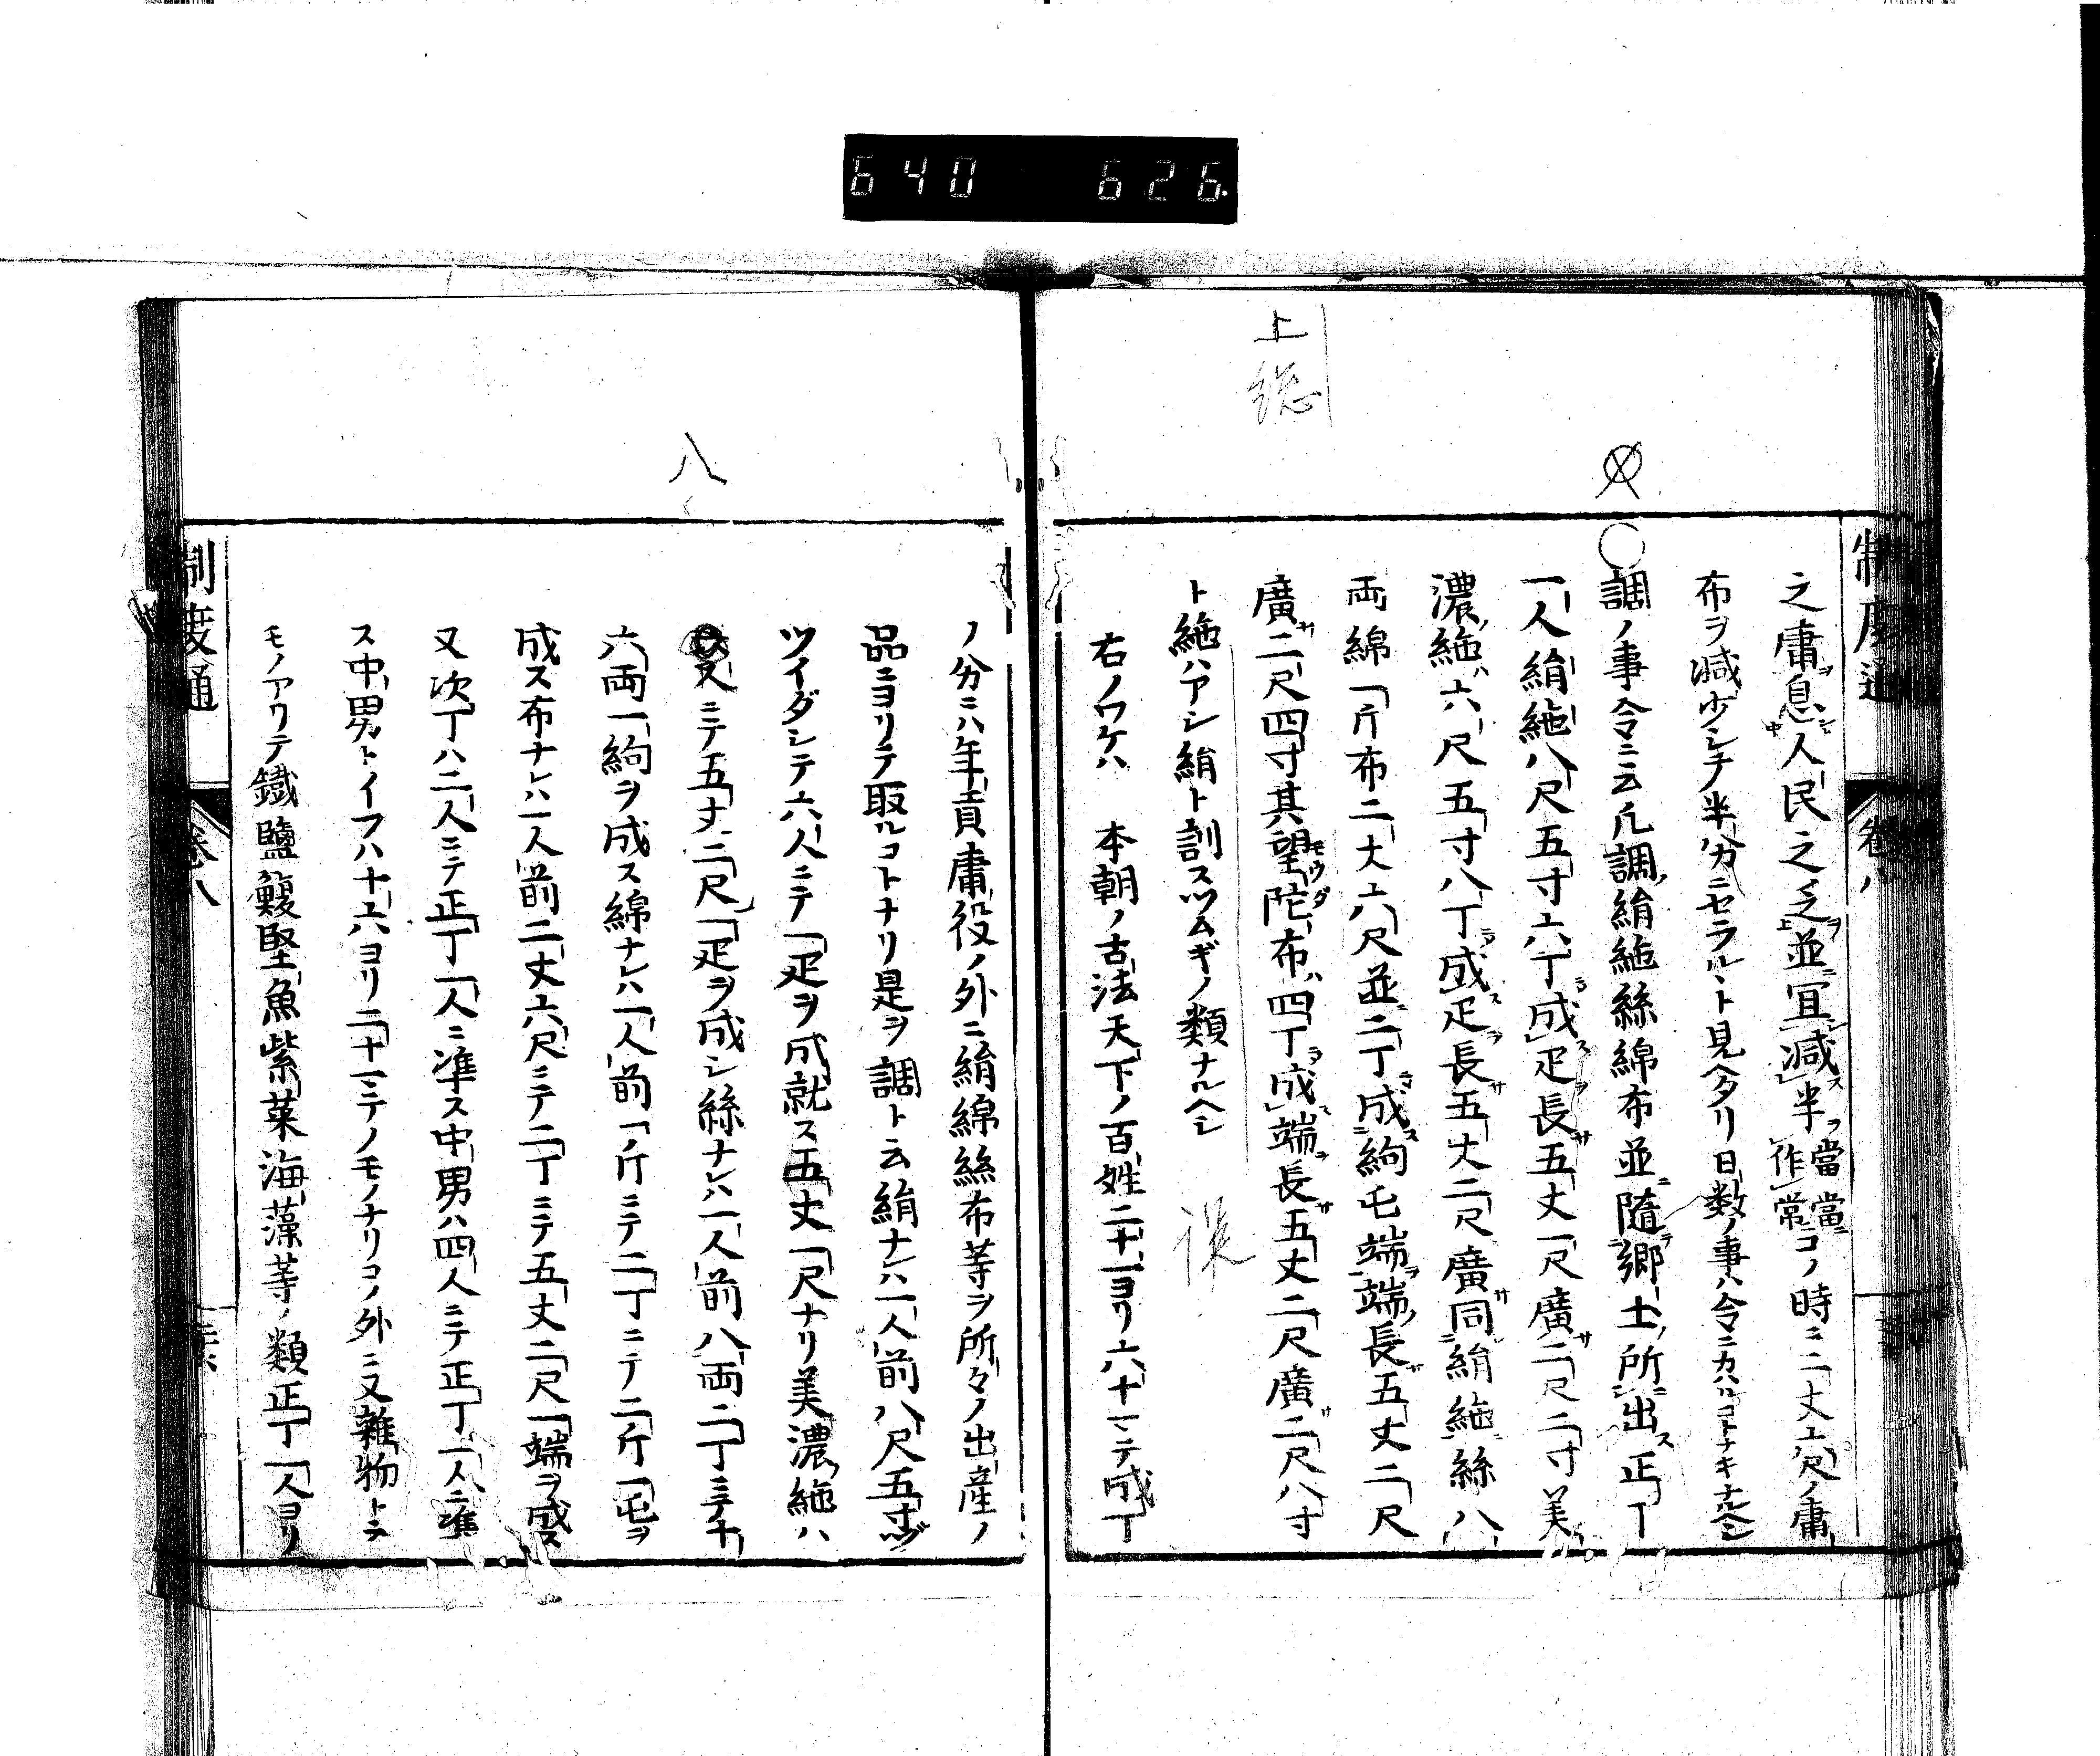 640 626
上総
制度通 卷八
之庸息人民之乏並宜減半當作常コノ時ニ二丈六尺ノ庸
布ヲ減少シテ半分ニセラルヽト見ヘタリ日数ノ事ハ令ニカハルコトナキナルヘシ
○調ノ事令ニ云凡調絹絁絲綿布並隨郷土所出正丁
一人絹絁八尺五寸六丁成疋長五丈一尺廣二尺二寸美
濃絁六尺五寸八丁成疋長五丈二尺廣同絹絁絲八
両綿一斤布二丈六尺並二丁成絇屯端端長五丈二尺
廣二尺四寸其望陀布四丁成端長五丈二尺廣二尺八寸
ト絁ハアシ絹ト訓スツムギノ類ナルヘシ
右ノワケハ 本朝ノ古法天下ノ百姓二十一ヨリ六十マテ成丁
八
ノ分ニハ年貢庸役ノ外ニ絹綿絲布等ヲ所々ノ出産ノ
品ニヨリテ取ルコトナリ是ヲ調ト云絹ナレハ一人前八尺五寸ヅ
ツイダシテ六人ニテ一疋ヲ成就ス五丈一尺ナリ美濃絁ハ
ニテ五丈二尺一疋ヲ成シ絲ナレハ一人前八両二丁ニテ十
六両一絇ヲ成ス綿ナレハ一人前一斤ニテ二丁ニテ二斤一屯ヲ
成ス布ナレハ一人前二丈六尺ニテ二丁ニテ五丈二尺一端ヲ成ス
又次丁ハ二人ニテ正丁一人ニ準ス中男ハ四人ニテ正丁一人ニ準
ス中男トイフハ十六ヨリ二十マテノモノナリコノ外ニ又雜物トテ
モノアリテ鐵鹽鰒堅魚紫菜海藻等ノ類正丁一人ヨリ
制度通 卷八